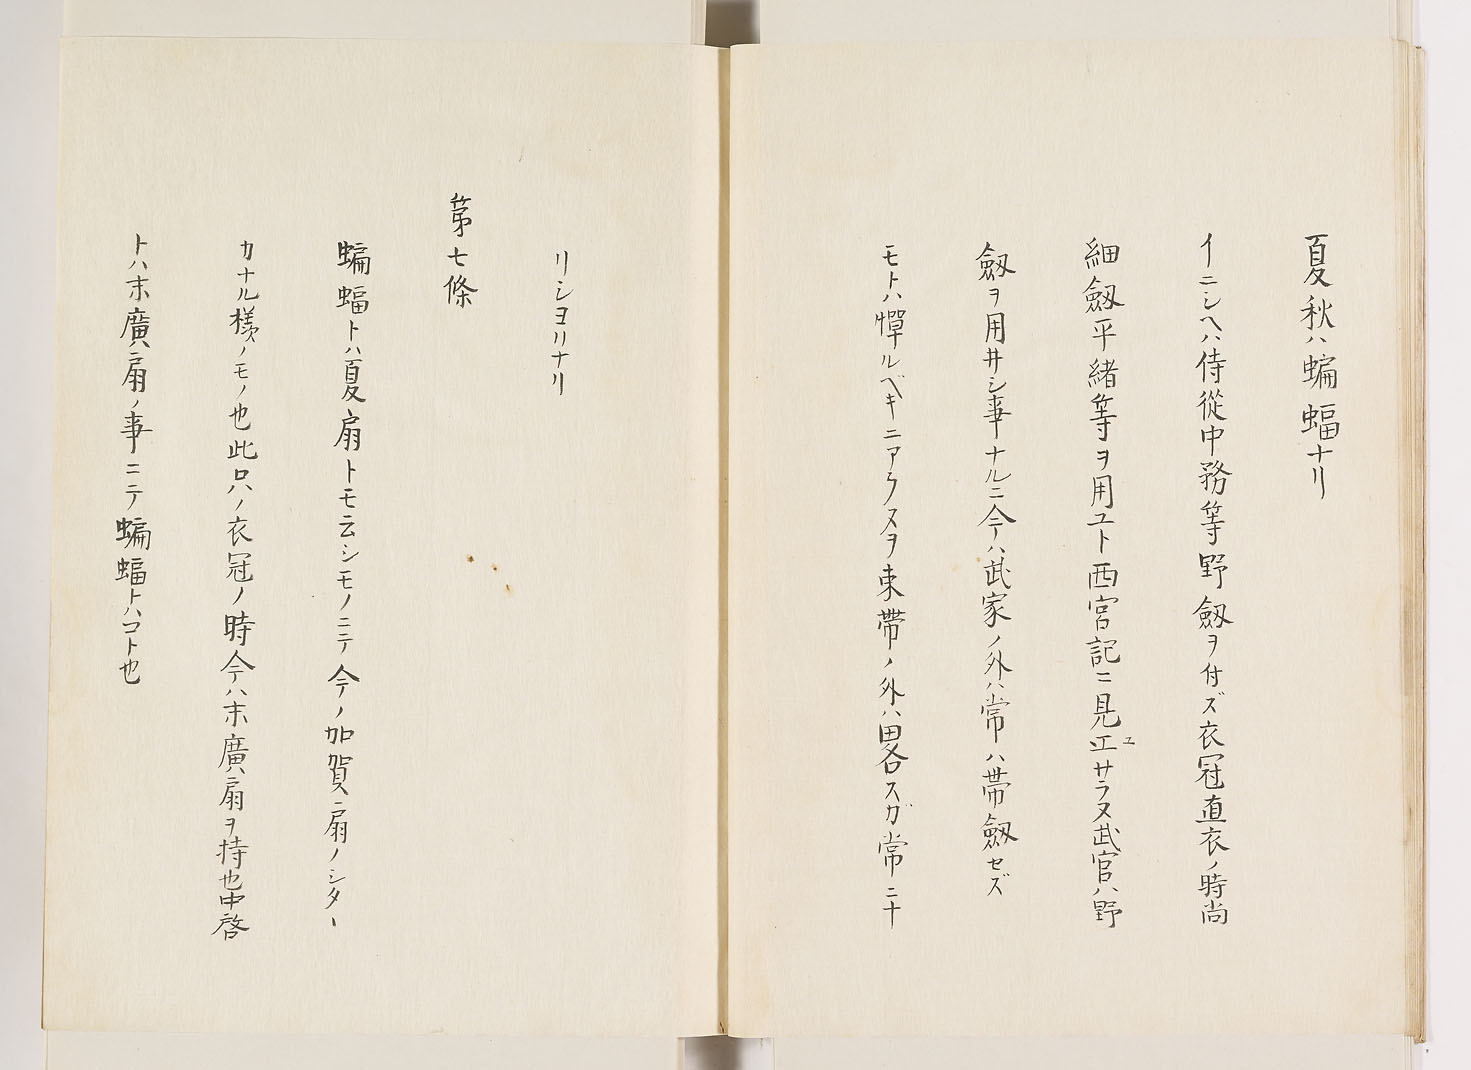 夏秋ハ蝙蝠ナリ
イニシヘハ侍從中務等野劔ヲ付ズ衣冠直衣ノ時尚
細劔平緒等ヲ用ユト西宮記ニ見エサラヌ武官ハ野
ユ
劔ヲ用井シ事ナルニ今ハ武家ノ外ハ常ハ帯劔セズ
モトハ憚ルベキニアラヌヲ束帶ノ外ハ畧スガ常ニナ
リシヨリナリ
第七條
蝙蝠トハ夏扇トモ云シモノニテ今ノ加賀扇ノシタヽ
カナル樣ノモノ也此只ノ衣冠ノ時今ハ末廣扇ヲ持也中啓
トハ末廣扇ノ事ニテ蝙蝠トハコト也